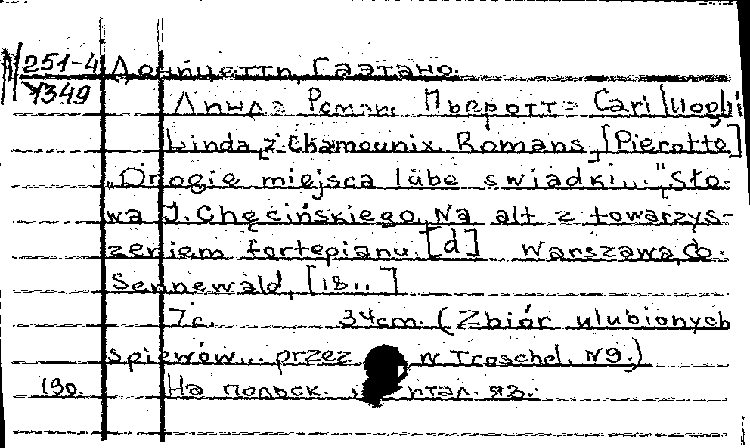 N 251-4 Доницетти, Гаэтано.
У349
Линда Роман. Пьеротт= Cari luoghi
Linda [z Chamounix. Romans] [Pierotto]
„Drogie miejsca lube swiadki..." Sło-
wa J. Chęcińskiego. Na alt z towarzys-
zeniem fortepianu. [d] Warszawa, G.
Sennewald, [18..]
7 с. 34 cm. (Zbiór ulubionych
spiewów... przez w Troschel. N9.)
190. На польск. итал. яз.